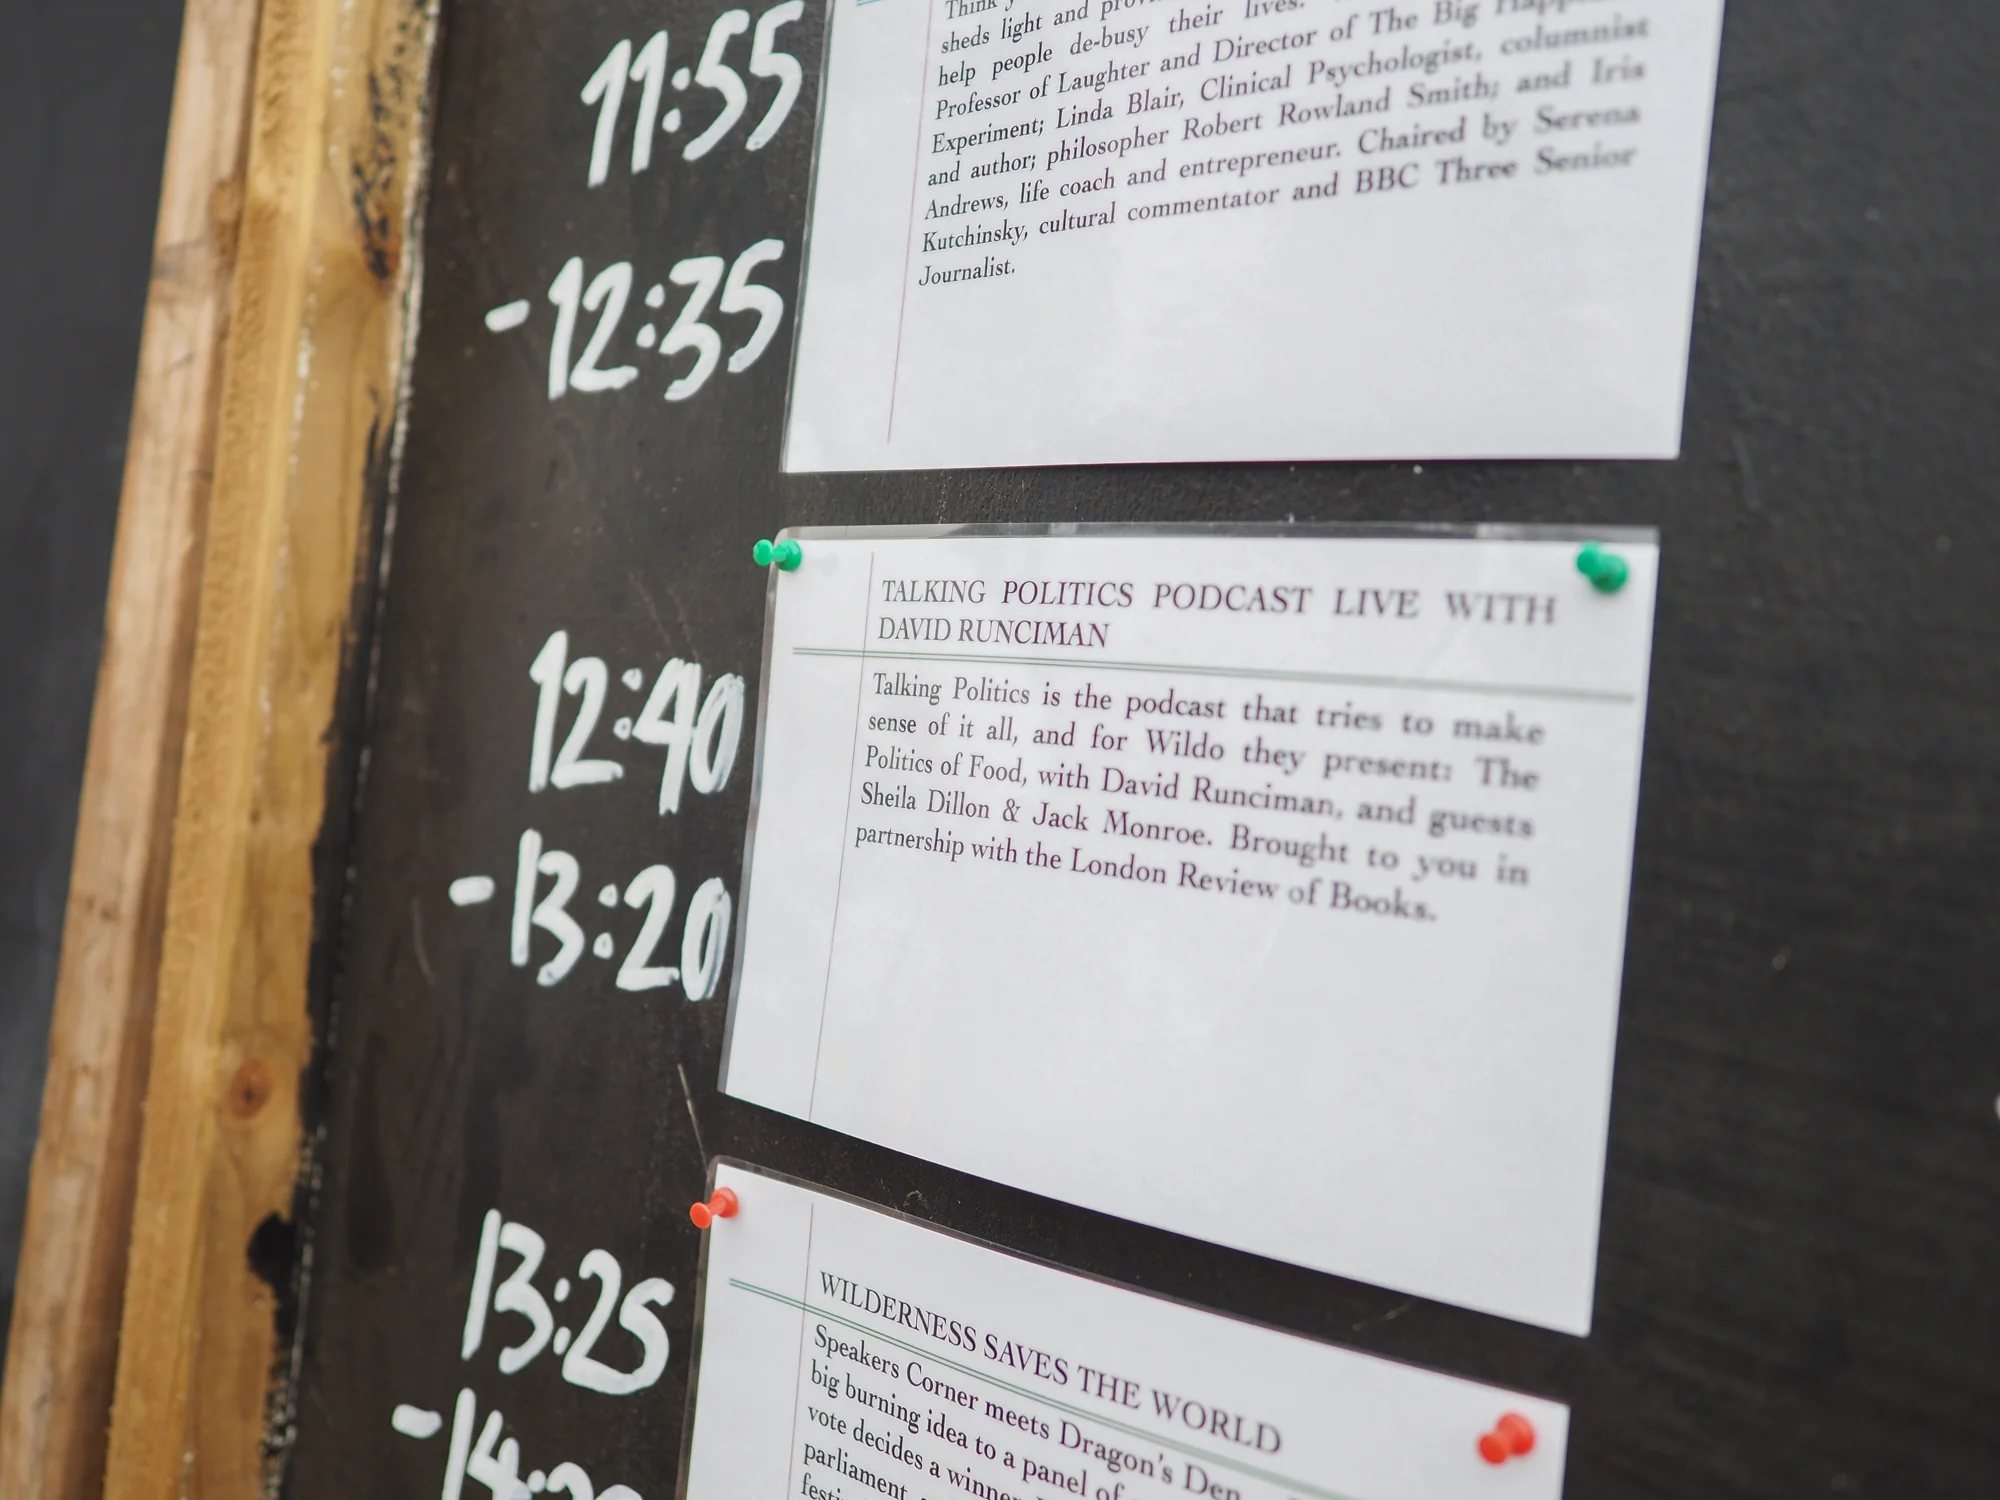 11:55
- 12:35
Think
sheds light and
help people de-busy their lives.
Professor of Laughter and Director of The Big
Experiment; Linda Blair, Clinical Psychologist, columnist
and author; philosopher Robert Rowland Smith; and Iris
Andrews, life coach and entrepreneur. Chaired by Serena
Kutchinsky, cultural commentator and BBC Three Senior
Journalist.
12:40
- 13:20
TALKING POLITICS PODCAST LIVE WITH
DAVID RUNCIMAN
Talking Politics is the podcast that tries to make
sense of it all, and for Wildo they present: The
Politics of Food, with David Runciman, and guests
Sheila Dillon & Jack Monroe. Brought to you in
partnership with the London Review of Books.
13:25
WILDERNESS SAVES THE WORLD
Speakers Corner meets Dragon's Den
big burning idea to a panel of
vote decides a winner
parliament